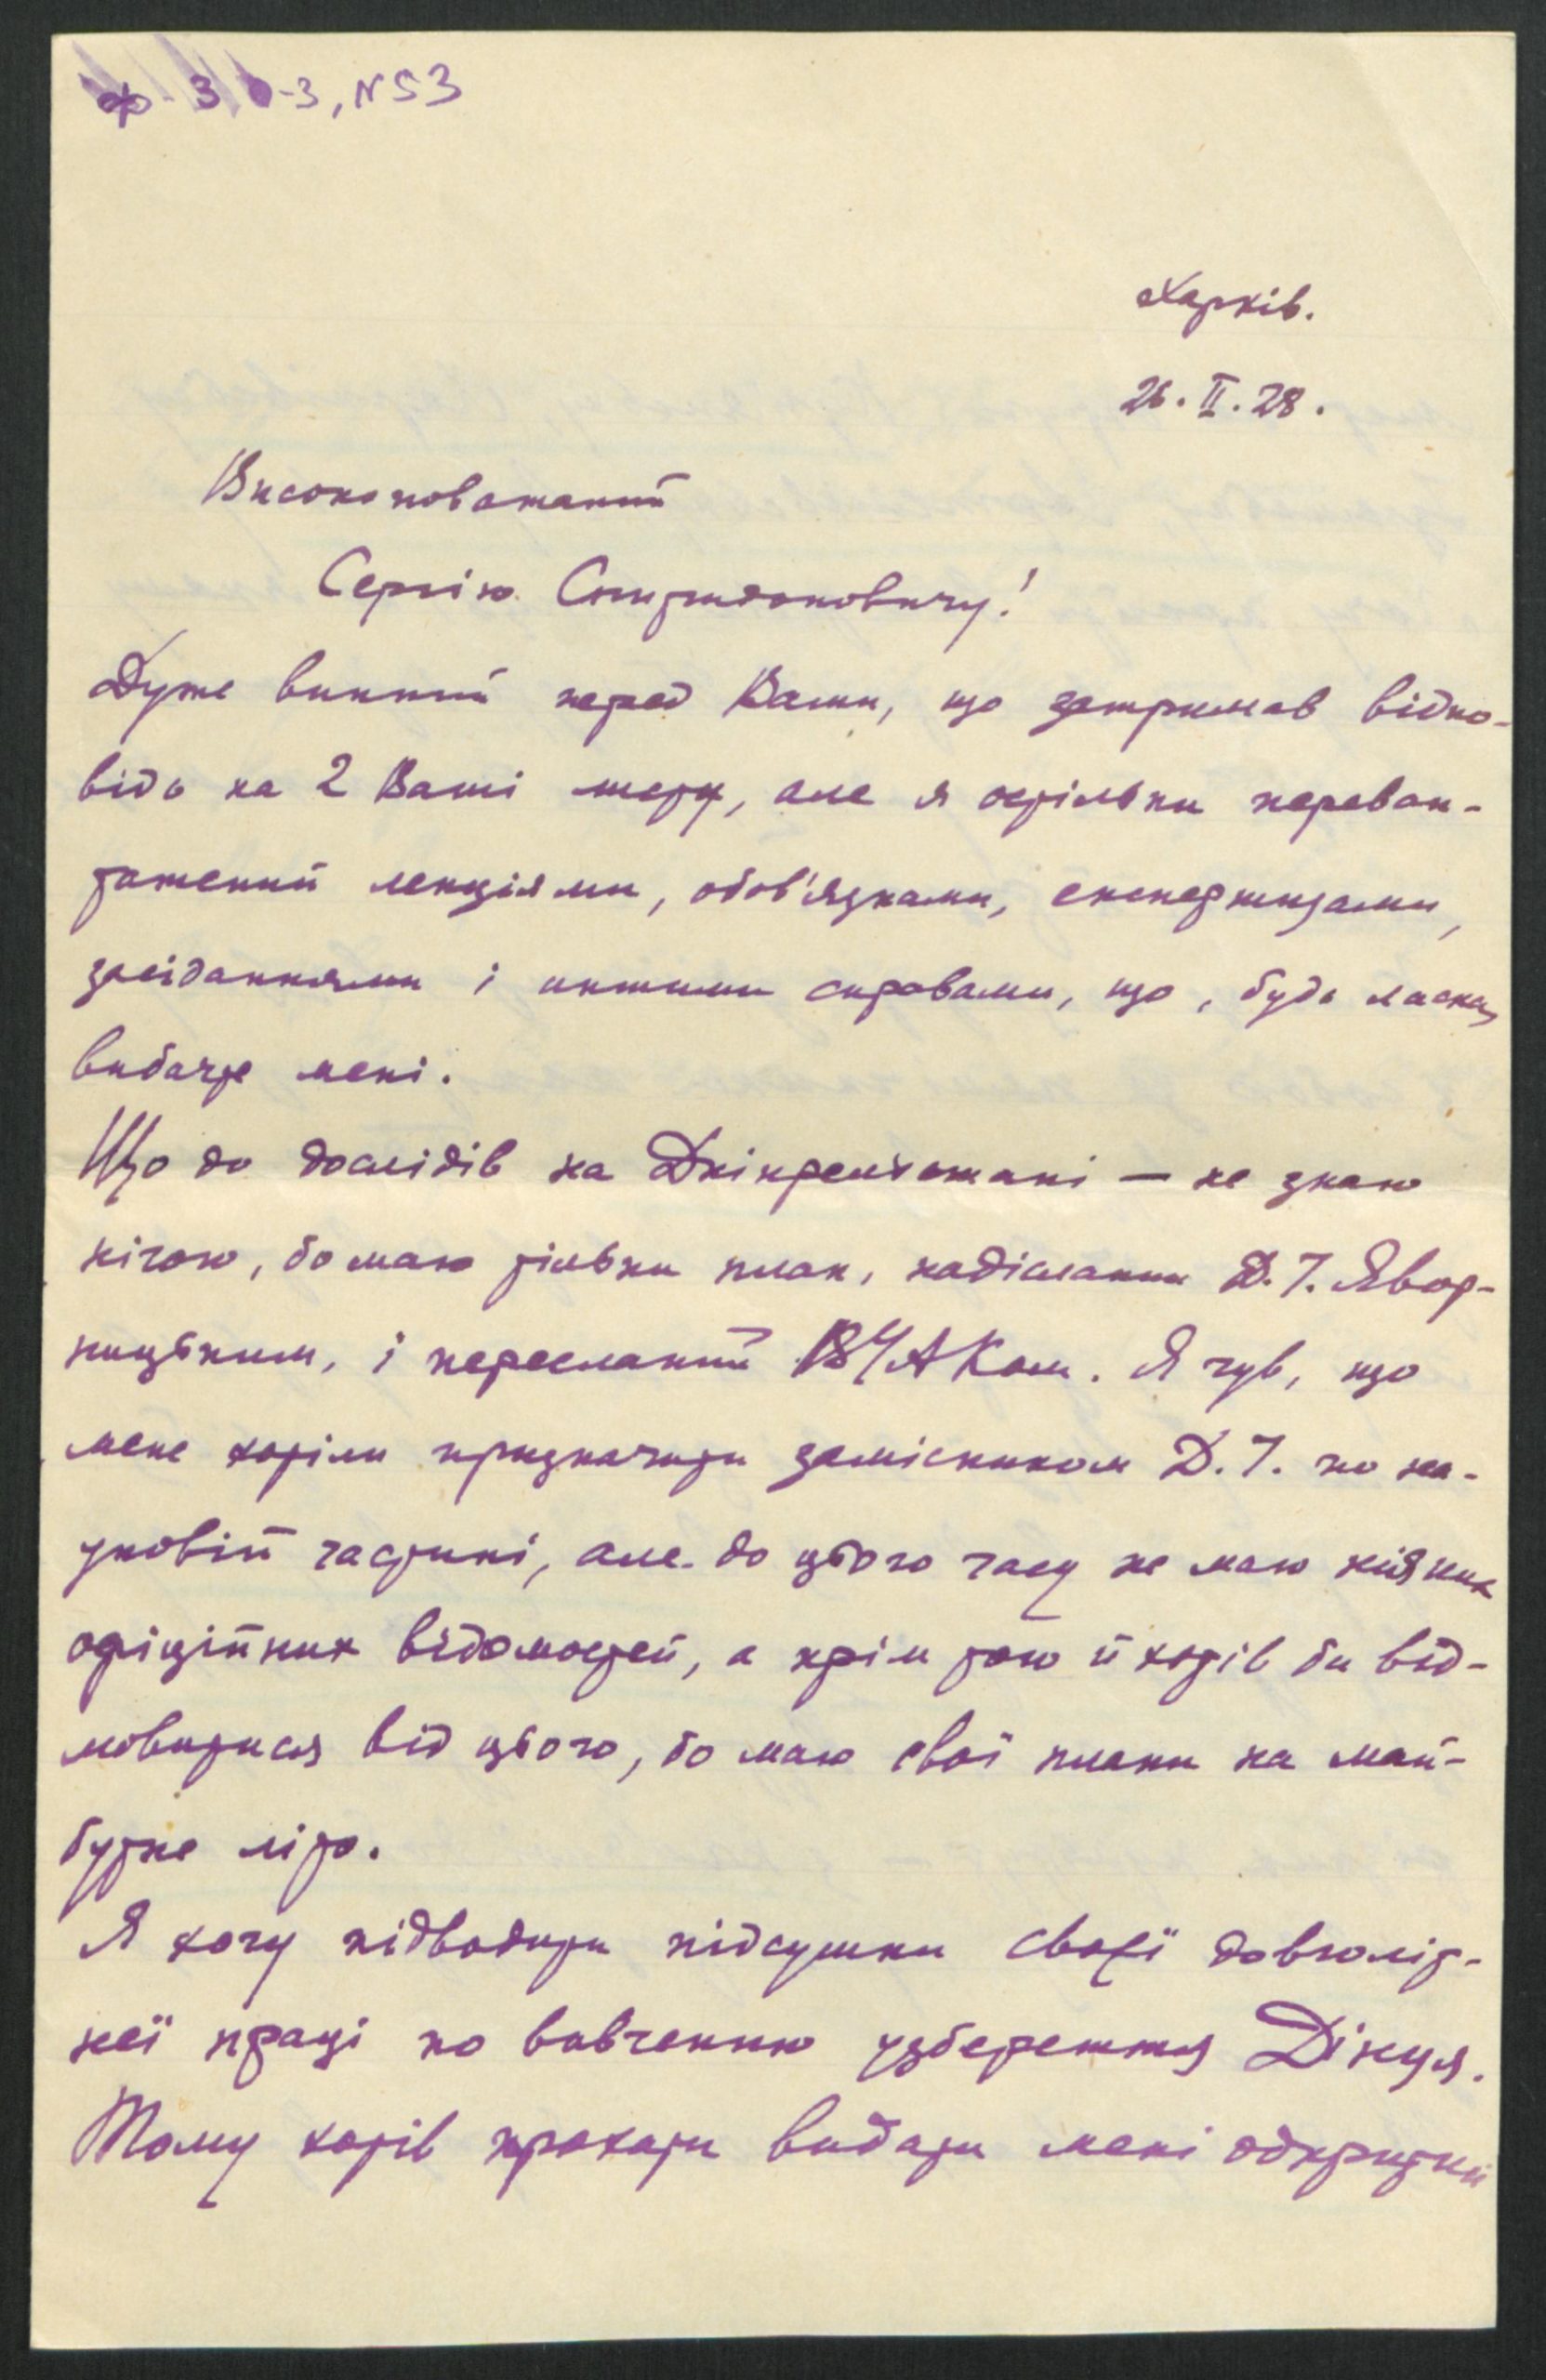 ф 3 -3, N53
Харків.
26.II.28.
Високоповажаний
Сергію Спиридоновичу!
Дуже винний перед Вами, що затримав відпо-
відь на 2 Ваші листи, але я остільки переван-
тажений лекціями, обов'язками, експертизами,
засіданнями і иншими справами, що, будь ласка,
вибачте мені.
Що до дослідів на Дніпрельстані — не знаю
нічого, бо маю тільки план, надісланий Д.І. Явор-
ницьким, і пересланий ВУАКом. Я чув, що
мене хотіли призначити замісником Д.І. по на-
уковій частині, але до цього часу не маю ніяких
офіційних відомостей, а крім того й хотів би від-
мовитися від цього, бо маю свої плани на май-
бутнє літо.
Я хочу підводити підсумки своєї довголіт-
неї праці по вивченню узбережжя Дінця.
Тому хотів прохати видати мені одкритий